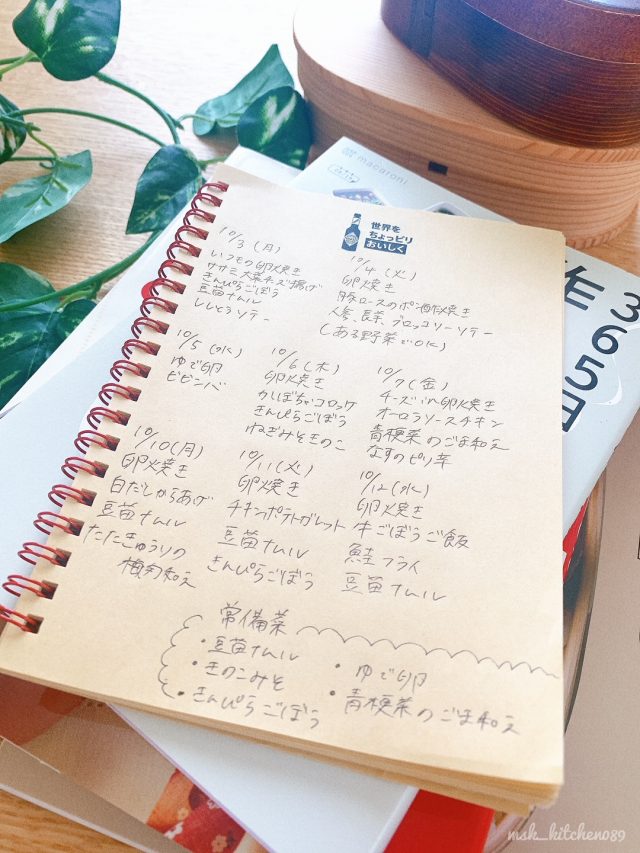 macaroni
世界を
ちょっピリ
おいしく
365日
10/3 (月)
いつもの卵焼き
ササミ大葉チーズ揚げ
きんぴらごぼう
豆苗ナムル
ししとうソテー
10/4 (火)
卵焼き
豚ロースのポン酢焼き
人参、長芋、ブロッコリーソテー
(ある野菜でOK)
10/5 (水)
ゆで卵
ビビンバ
10/6 (木)
卵焼き
かぼちゃコロッケ
きんぴらごぼう
ねぎみそきのこ
10/7 (金)
チーズin卵焼き
オーロラソースチキン
青梗菜のごま和え
なすのピリ辛
10/10(月)
卵焼き
白だしからあげ
豆苗ナムル
たたききゅうりの
梅肉和え
10/11 (火)
卵焼き
チキンポテトガレット
豆苗ナムル
きんぴらごぼう
10/12 (水)
卵焼き
牛ごぼうご飯
鮭フライ
豆苗ナムル
常備菜
・豆苗ナムル
・きのこみそ
・きんぴらごぼう
・ゆで卵
・青梗菜のごま和え
msk_kitchen089